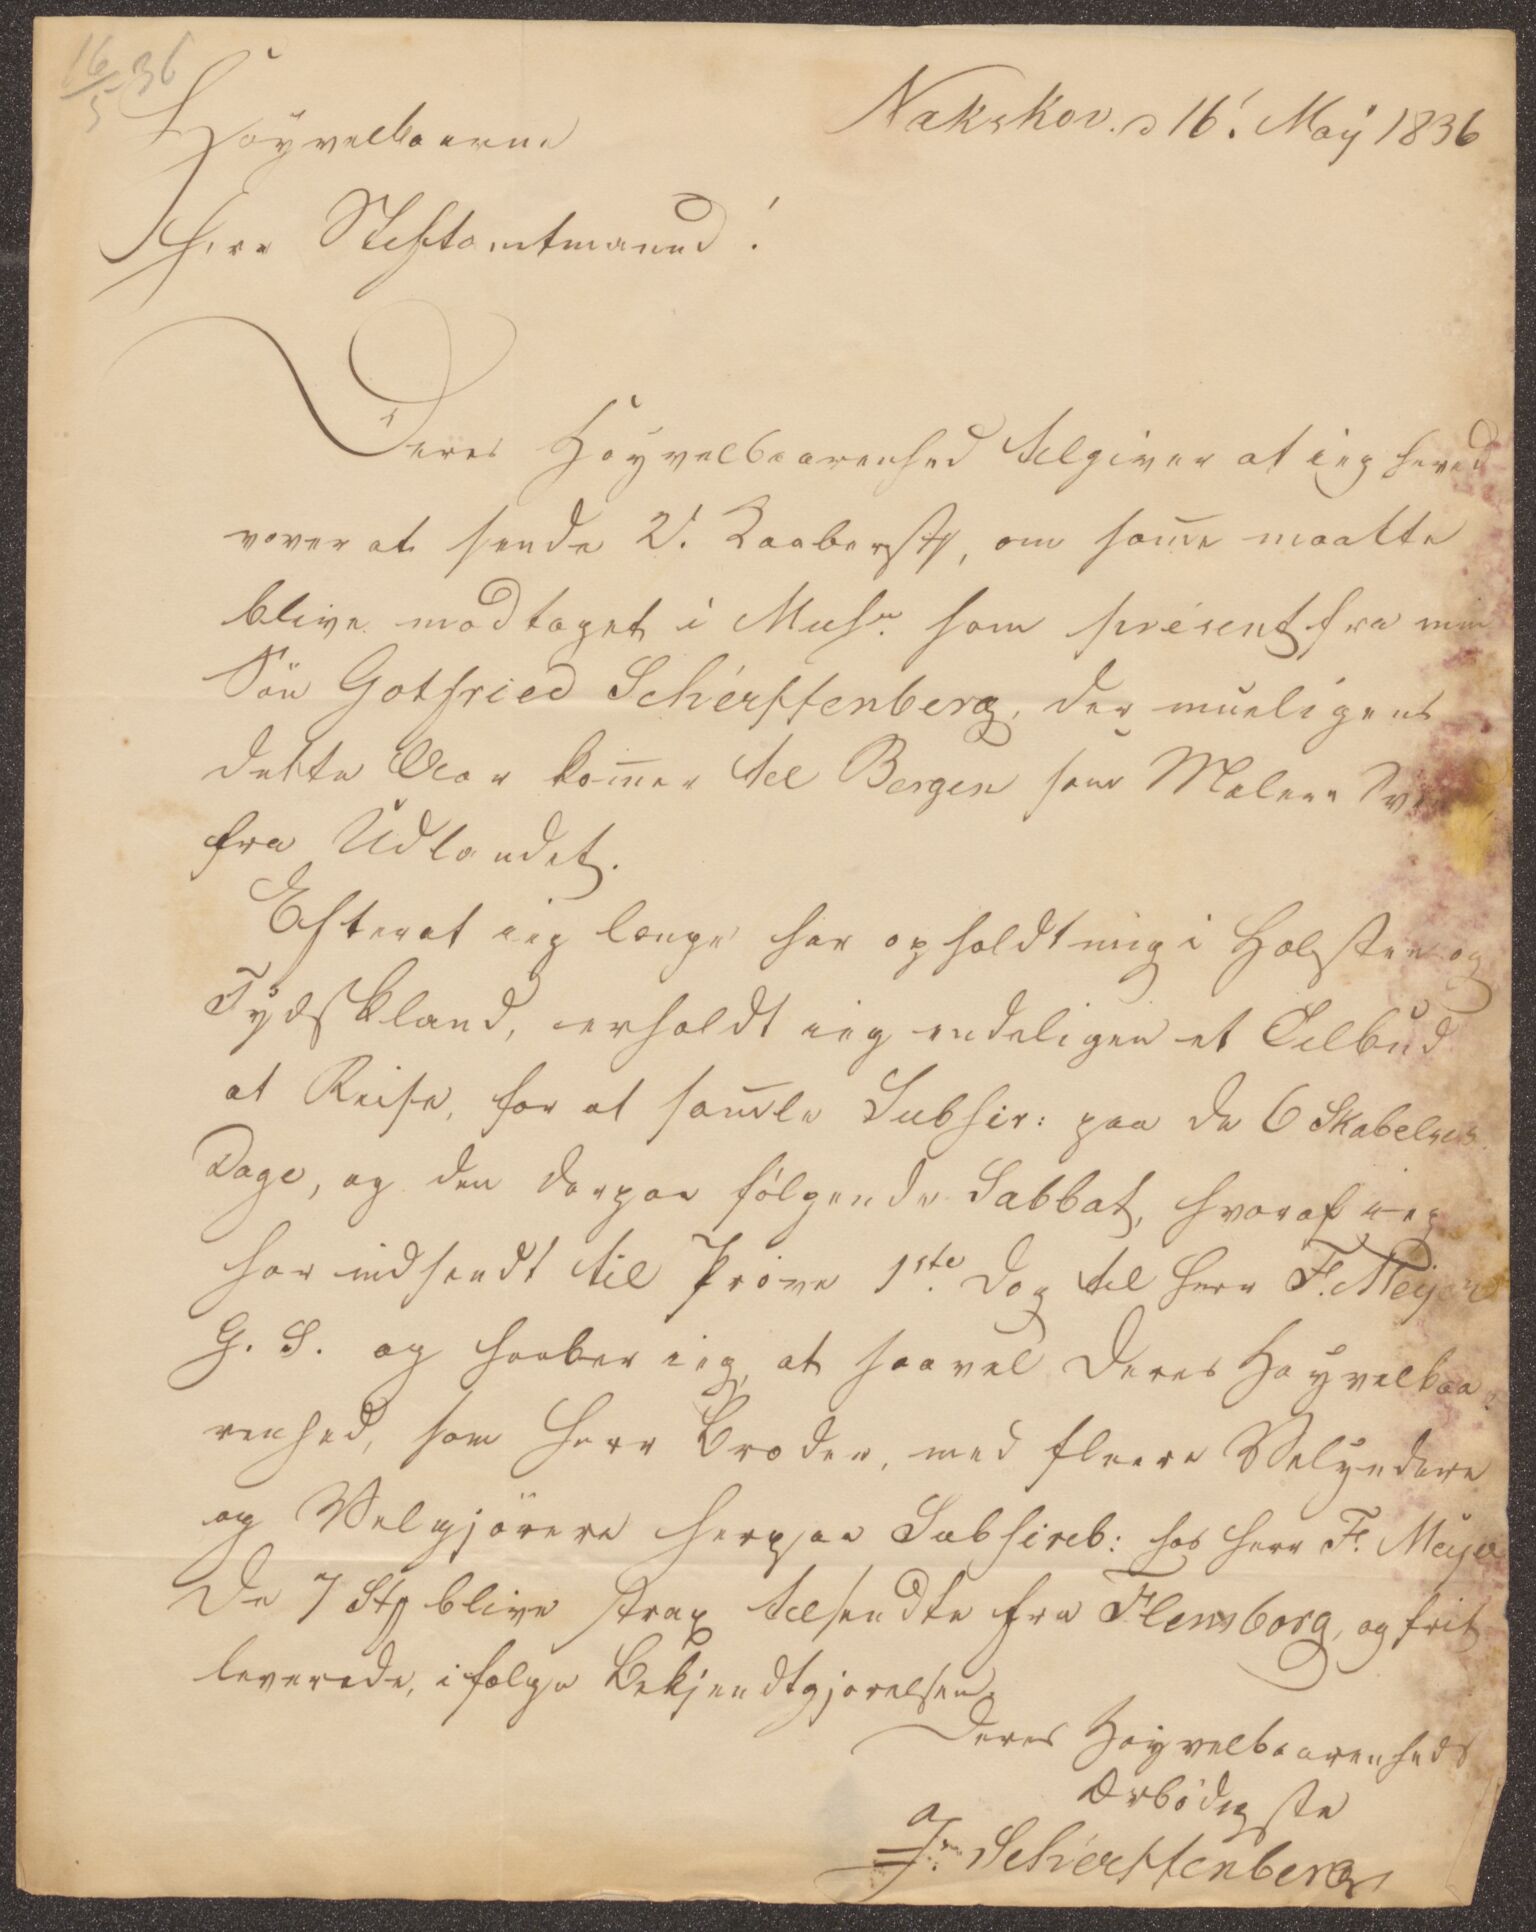 16/5 36
Nakskov. d 16! Maÿ 1836
Höyvelbaarne
Herr Stiftamtmannd!
Deres Höyvelbaarenhed tilgiver at ieg herved
vover at sende 2. Kaaberst, om som̅e maatte
blive modtaget i Mus. som présent fra min
Sön Gotfried Scherffenberg, der mueligens
dette Aar kom̅er til Bergen som Maler Svend
fra Udlandet.
Efterat ieg længe har opholdt mig i Holsten og
Tydskland, erholdt ieg endeligen et Tilbud
at Reise, for at sam̅le Subscr: paa de 6 Skabelses
Dage, og den derpaa fölgende Sabbat, hvoraf ieg
har indsendt til Pröve 1ste Dag til Herr F. Meijer
G. S. og haaber ieg, at saavel Deres Höyvelbaa-
renhed, som Herr Broder, med fleere Velyndere
og Velgjörere herpaa Subscreb: hos Herr F. Meijer
De 7 St blive strax tilsendte fra Flensborg, og frit
leverede, ifölge Bekjendtgjörelsen.
Deres Höyvelbaarenheds
Ærbödigste
Scherffenberg